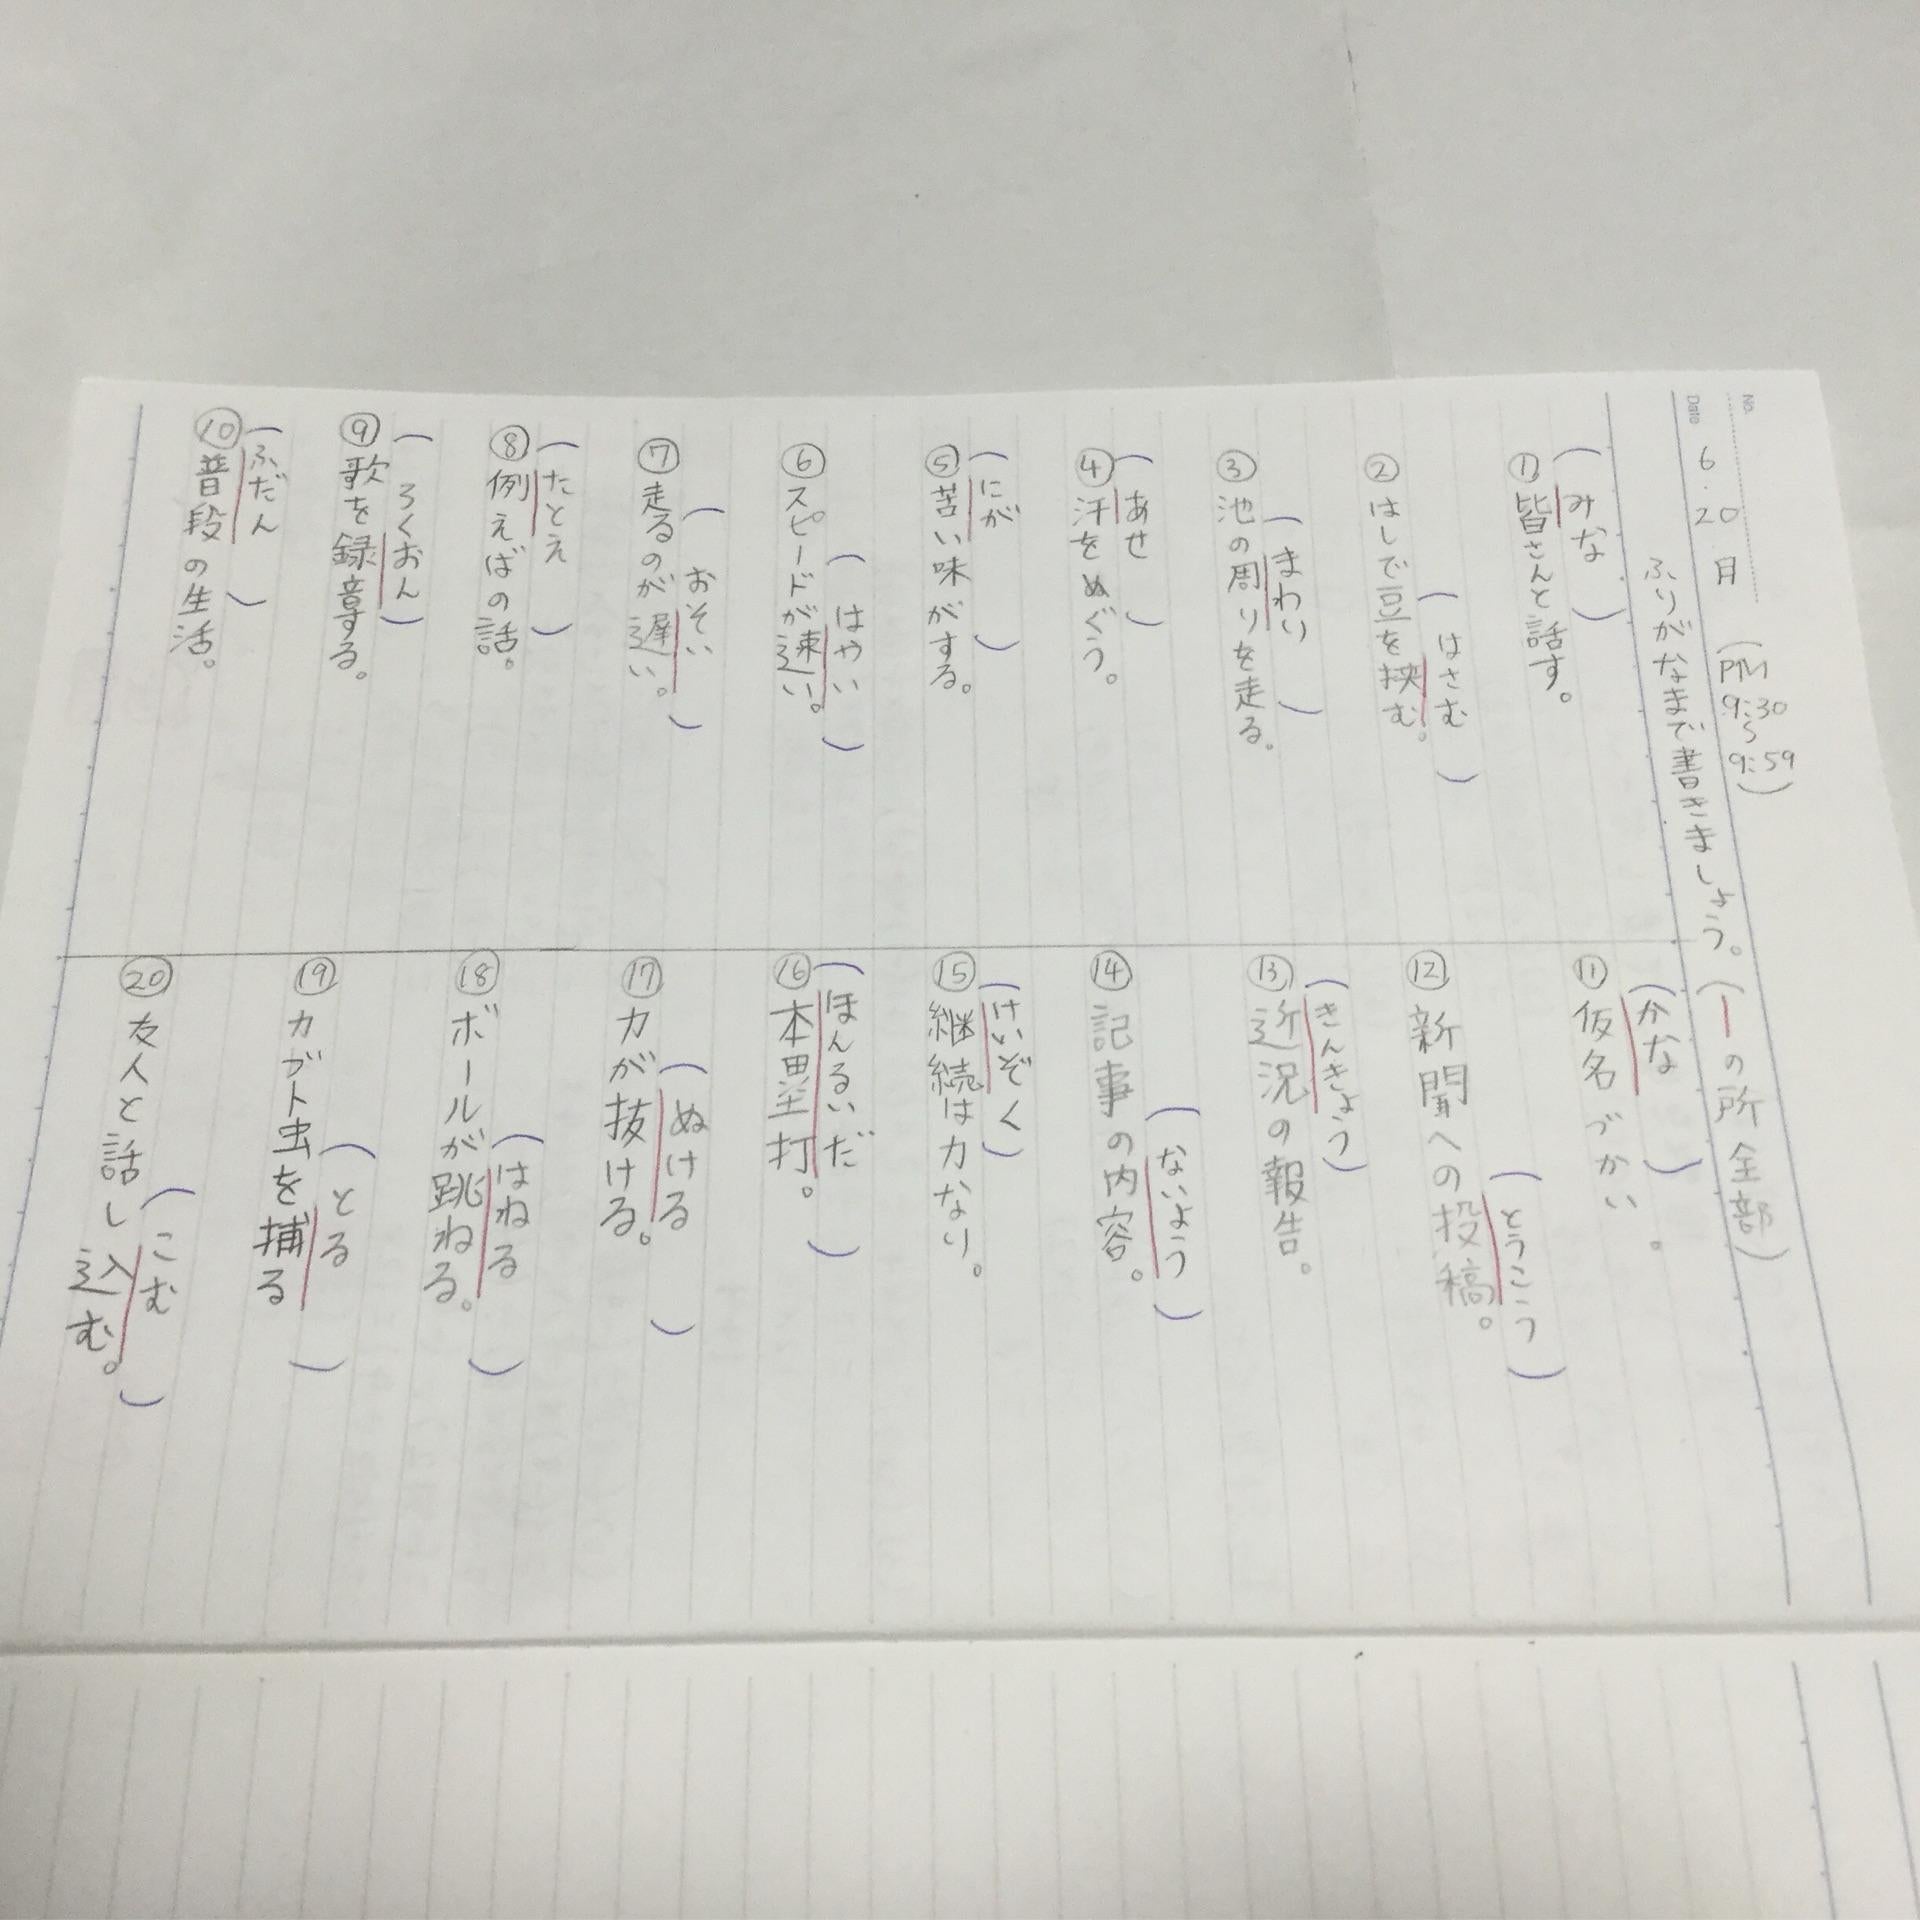 No.
Date 6.20 月 (PM 9:30～9:59)
ふりがなまで書きましょう。(ーの所全部)
(みな)
①皆さんと話す。
(はさむ)
②はしで豆を挟む。
(まわり)
③池の周りを走る。
(あせ)
④汗をぬぐう。
(にが)
⑤苦い味がする。
(はやい)
⑥スピードが速い。
(おそい)
⑦走るのが遅い。
(たとえ)
⑧例えばの話。
(ろくおん)
⑨歌を録音する。
(ふだん)
⑩普段の生活。
(かな)
⑪仮名づかい。
(とうこう)
⑫新聞への投稿。
(きんきょう)
⑬近況の報告。
(ないよう)
⑭記事の内容。
(けいぞく)
⑮継続は力なり。
(ほんるいだ)
⑯本塁打。
(ぬける)
⑰力が抜ける。
(はねる)
⑱ボールが跳ねる。
(とる)
⑲カブト虫を捕る
(こむ)
⑳友人と話し込む。